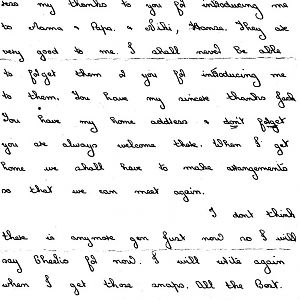 ress my thanks to you for introducing me
to Mama & Papa. & Niki, Hansa. They are
very good to me. I shall never be able
to forget them & you for introducing me
to them. You have my sincere thanks Jack
You have my home address & don't forget
you are always welcome there. When I get
home we shall have to make arrangements
so that we can meet again.
I don't think
there is anymore gen just now so I will
say Cheerio for now. I will write again
when I get those snaps. All the Best.